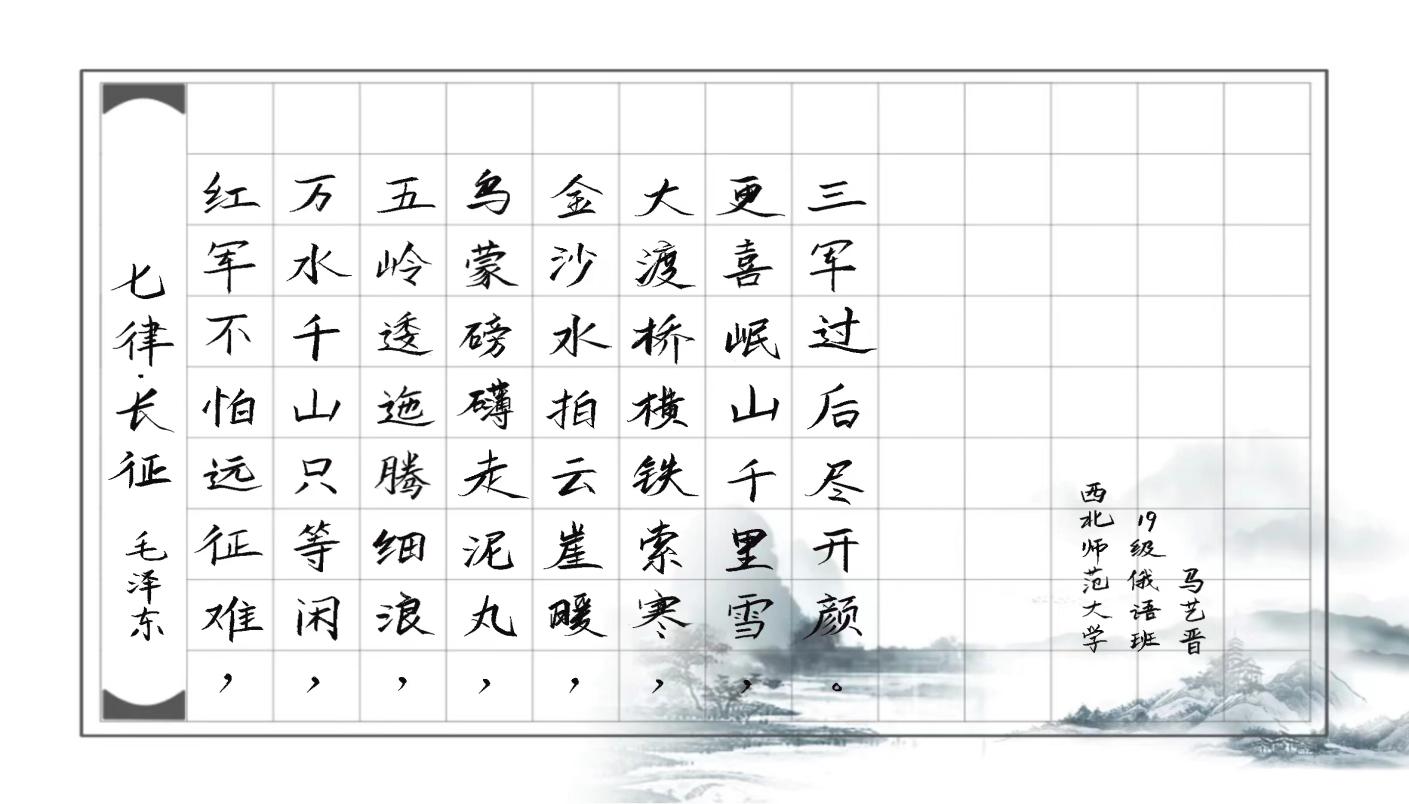 七律·长征 毛泽东
红军不怕远征难，
万水千山只等闲，
五岭逶迤腾细浪，
乌蒙磅礴走泥丸，
金沙水拍云崖暖，
大渡桥横铁索寒，
更喜岷山千里雪，
三军过后尽开颜。
西北师范大学
19级俄语班
马艺晋